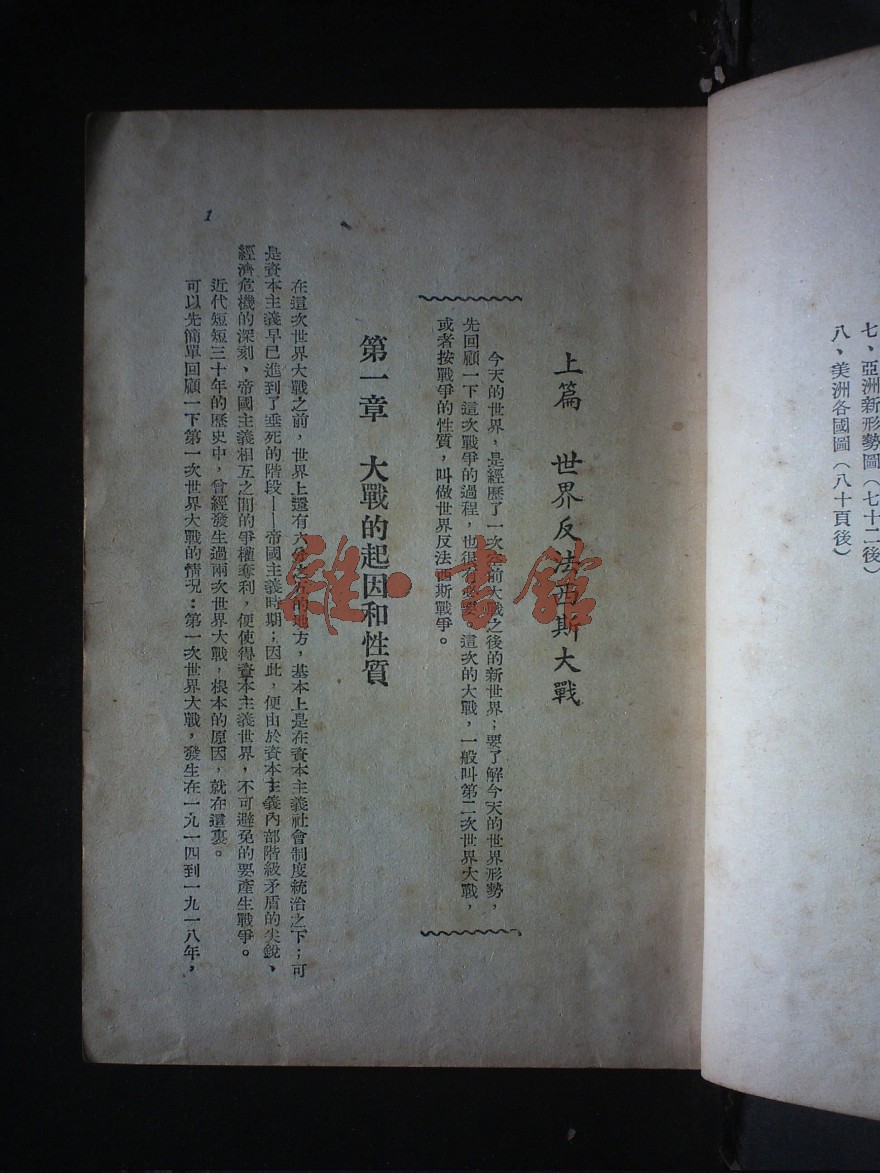 七、亞洲新形勢圖（七十二後）
八、美洲各國圖（八十頁後）
上篇　世界反法西斯大戰
今天的世界，是經歷了一次空前大戰之後的新世界；要了解今天的世界形勢，
先回顧一下這次戰爭的過程，也很有必要。這次的大戰，一般叫第二次世界大戰，
或者按戰爭的性質，叫做世界反法西斯戰爭。
第一章　大戰的起因和性質
在這次世界大戰之前，世界上還有六分之五的地方，基本上是在資本主義社會制度統治之下；可
是資本主義早已進到了垂死的階段——帝國主義時期；因此，便由於資本主義內部階級矛盾的尖銳、
經濟危機的深刻、帝國主義相互之間的爭權奪利，便使得資本主義世界，不可避免的要產生戰爭。
近代短短三十年的歷史中，曾經發生過兩次世界大戰，根本的原因，就在這裏。
可以先簡單回顧一下第一次世界大戰的情況：第一次世界大戰，發生在一九一四到一九一八年，
1
雜·書館